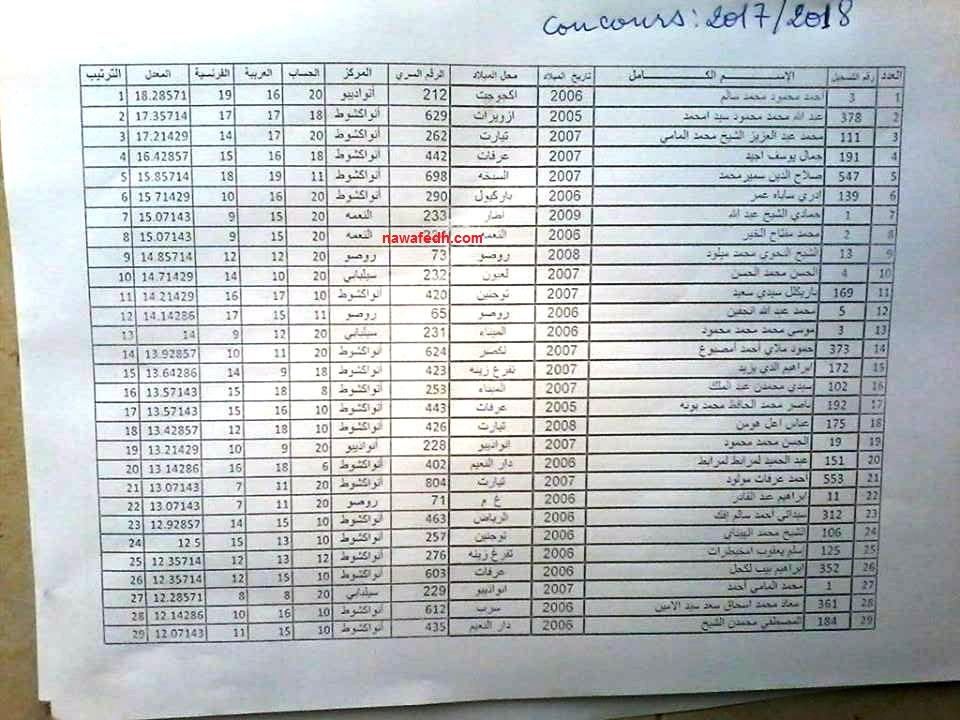 concours: 2017/2018
العدد رقم التسجيل الإســـم الكـــامل تاريخ الميلاد محل الميلاد الرقم السري المركز الحساب العربية الفرنسية المعدل الترتيب
1 3 أحمد محمود محمد سالم 2006 اكجوجت 212 أنواذيبو 20 16 19 18.28571 1
2 378 عبد الله محمد محمود سيد امحمد 2005 ازويرات 629 أنواكشوط 18 17 17 17.35714 2
3 111 محمد عبد العزيز الشيخ محمد المامي 2007 تيارت 262 أنواكشوط 20 17 14 17.21429 3
4 191 جمال يوسف اجيد 2007 عرفات 442 أنواكشوط 18 16 15 16.42857 4
5 547 صلاح الدين سمير محمد 2007 السبخه 698 أنواكشوط 11 19 18 15.85714 5
6 139 ادري ساباه عمر 2006 باركيول 290 أنواكشوط 20 16 10 15.71429 6
7 1 حمادي الشيخ عبد الله 2009 اطار 233 النعمه 20 15 9 15.07143 7
8 2 محمد مفتاح الخير 2006 النعمه النعمه 20 15 9 15.07143 8
nawafedh.com
9 13 الشيخ النحوي محمد ميلود 2008 روصو 73 روصو 20 12 12 14.85714 9
10 4 الحسن محمد الحسن 2007 لعيون 232 سيلبابي 20 10 14 14.71429 10
11 169 باريكلل سيدي سعيد 2007 توجنين 420 أنواكشوط 10 17 16 14.21429 11
12 5 محمد عبد الله انجفين 2006 روصو 65 روصو 11 15 17 14.14286 12
13 3 موسي محمد محمد محمود 2006 الميناء 231 سيلبابي 20 12 9 14 13
14 373 حمود ملاي أحمد أمصبوع 2007 لكصر 624 أنواكشوط 20 11 10 13.92857 14
15 172 ابراهيم الدي يزيد 2007 تفرغ زينه 423 أنواكشوط 18 9 14 13.64286 15
16 102 سيدي محمدن عبد الملك 2007 الميناء 253 أنواكشوط 8 18 15 13.57143 16
17 192 ناصر محمد الحافظ محمد بونه 2005 عرفات 443 أنواكشوط 10 16 15 13.57143 17
18 175 عباس اعل هومن 2008 تيارت 426 أنواكشوط 10 16 12 13.42857 18
19 19 الحسن محمد محمود 2007 انواذيبو 228 أنواذيبو 20 9 10 13.21429 19
20 151 عبد الحميد لمرابط لمرابط 2006 دار النعيم 402 أنواكشوط 6 18 16 13.14286 20
21 553 أحمد عرفات مولود 2007 تيارت 804 أنواكشوط 20 11 7 13.07143 21
22 11 ابراهيم عبد القادر 2006 غ م 71 روصو 20 11 7 13.07143 22
23 312 سيداتي أحمد سالم افك 2006 الرياض 463 أنواكشوط 10 15 14 12.92857 23
24 106 الشيخ محمد 2006 توجنين 257 أنواكشوط 10 13 15 12.5 24
25 125 سلم يعقوب امخيطرات 2006 تفرغ زينه 276 أنواكشوط 12 13 12 12.35714 25
26 352 ابراهيم بيب لكحل 2006 عرفات 603 أنواكشوط 10 15 12 12.35714 26
27 1 محمد المامي أحمد 2007 انواذيبو 229 سيلبابي 20 8 8 12.28571 27
28 361 معاذ محمد اسحاق سعد سيد الامين 2006 سرب 612 أنواكشوط 10 16 10 12.14286 28
29 184 المصطفي محمدن الشيخ 2006 دار النعيم 435 أنواكشوط 10 15 11 12.07143 29